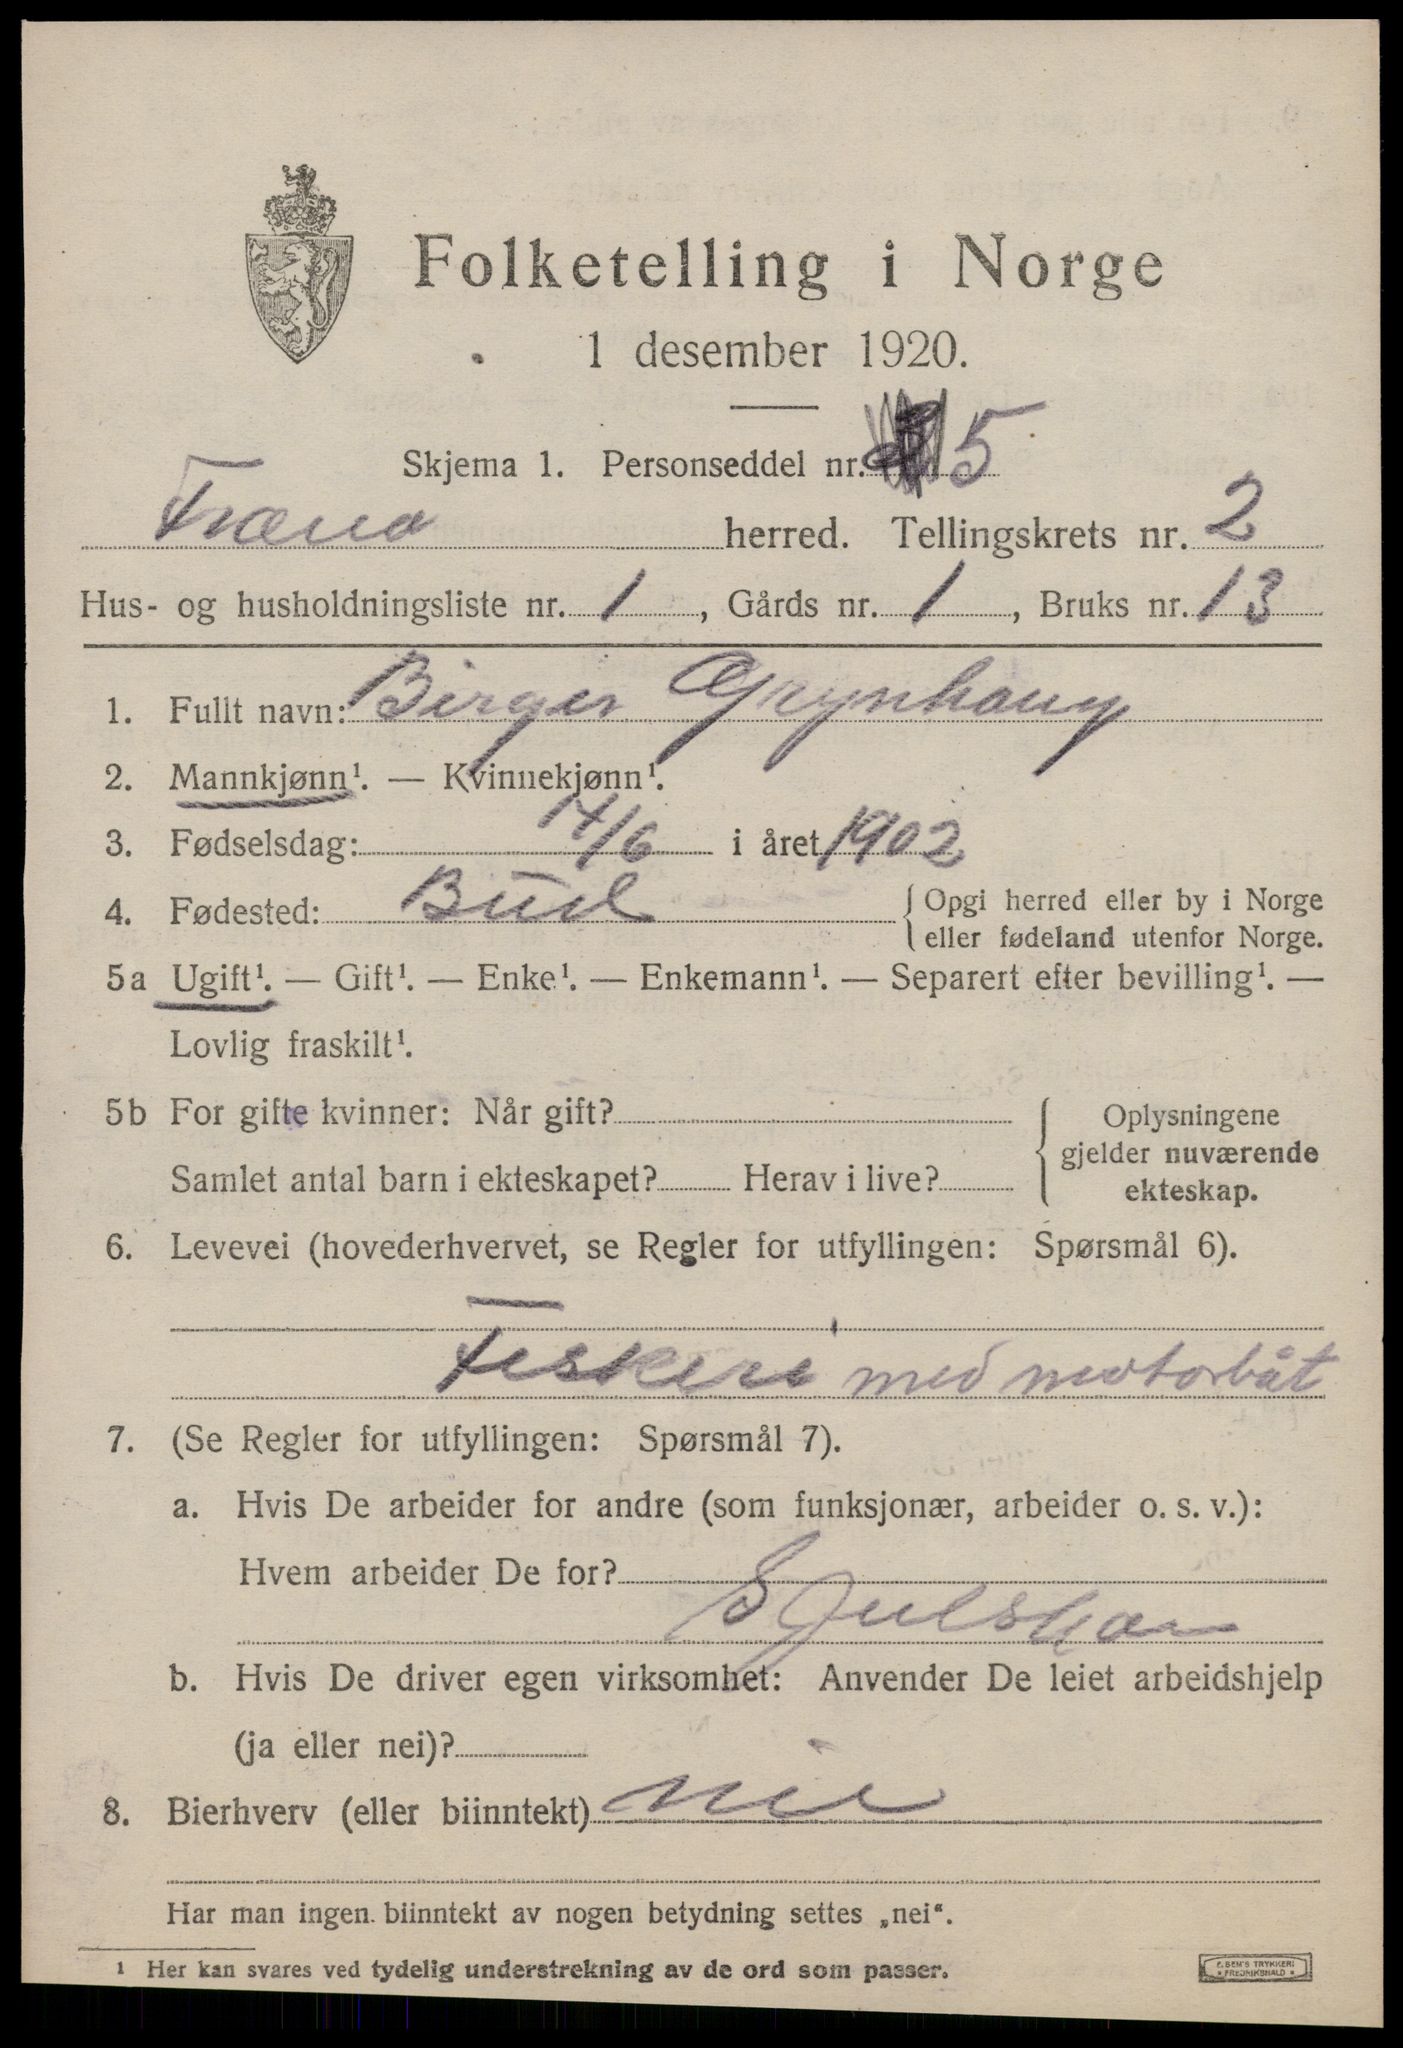 Folketelling i Norge
1 desember 1920.
Skjema 1. Personseddel nr. 5
Fræna herred. Tellingskrets nr. 2
Hus- og husholdningsliste nr. 1, Gårds nr. 1, Bruks nr. 13
1. Fullt navn: Birger Grynhaug
2. Mannkjønn¹. — Kvinnekjønn¹.
3. Fødselsdag: 14/6 i året 1902
4. Fødested: Bud { Opgi herred eller by i Norge
eller fødeland utenfor Norge.
5a Ugift¹. — Gift¹. — Enke¹. — Enkemann¹. — Separert efter bevilling¹. —
Lovlig fraskilt¹.
5b For gifte kvinner: Når gift? { Oplysningene
gjelder nuværende
Samlet antal barn i ekteskapet? Herav i live? ekteskap.
6. Levevei (hovederhvervet, se Regler for utfyllingen: Spørsmål 6).
Fiskeri med motorbåt
7. (Se Regler for utfyllingen: Spørsmål 7).
a. Hvis De arbeider for andre (som funksjonær, arbeider o. s. v.):
Hvem arbeider De for?
S Julshav
b. Hvis De driver egen virksomhet: Anvender De leiet arbeidshjelp
(ja eller nei)?
8. Bierhverv (eller biinntekt) nei
Har man ingen biinntekt av nogen betydning settes „nei“.
¹ Her kan svares ved tydelig understrekning av de ord som passer.
E. SEM'S TRYKKERI
• FREDRIKSHALD •